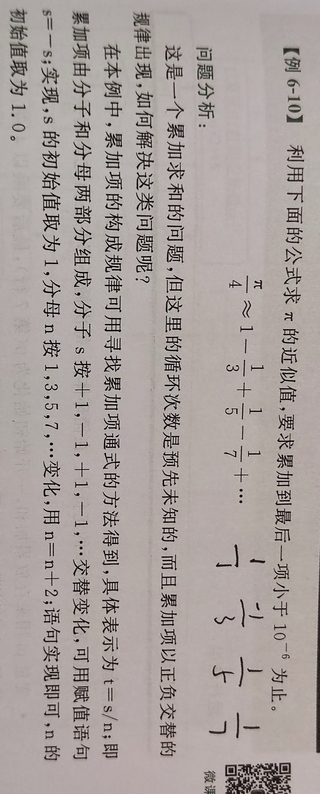 【例 6-10】 利用下面的公式求 π 的近似值,要求累加到最后一项小于 10⁻⁶ 为止。
π/4≈1-1/3+1/5-1/7+…
1/1 -1/3 1/5 -1/7
微课
问题分析:
这是一个累加求和的问题,但这里的循环次数是预先未知的,而且累加项以正负交替的
规律出现,如何解决这类问题呢?
在本例中,累加项的构成规律可用寻找累加项通式的方法得到,具体表示为 t=s/n;即
累加项由分子和分母两部分组成,分子 s 按+1,-1,+1,-1,…交替变化,可用赋值语句
s=-s;实现,s 的初始值取为 1,分母 n 按 1,3,5,7,…变化,用 n=n+2;语句实现即可,n 的
初始值取为 1.0。